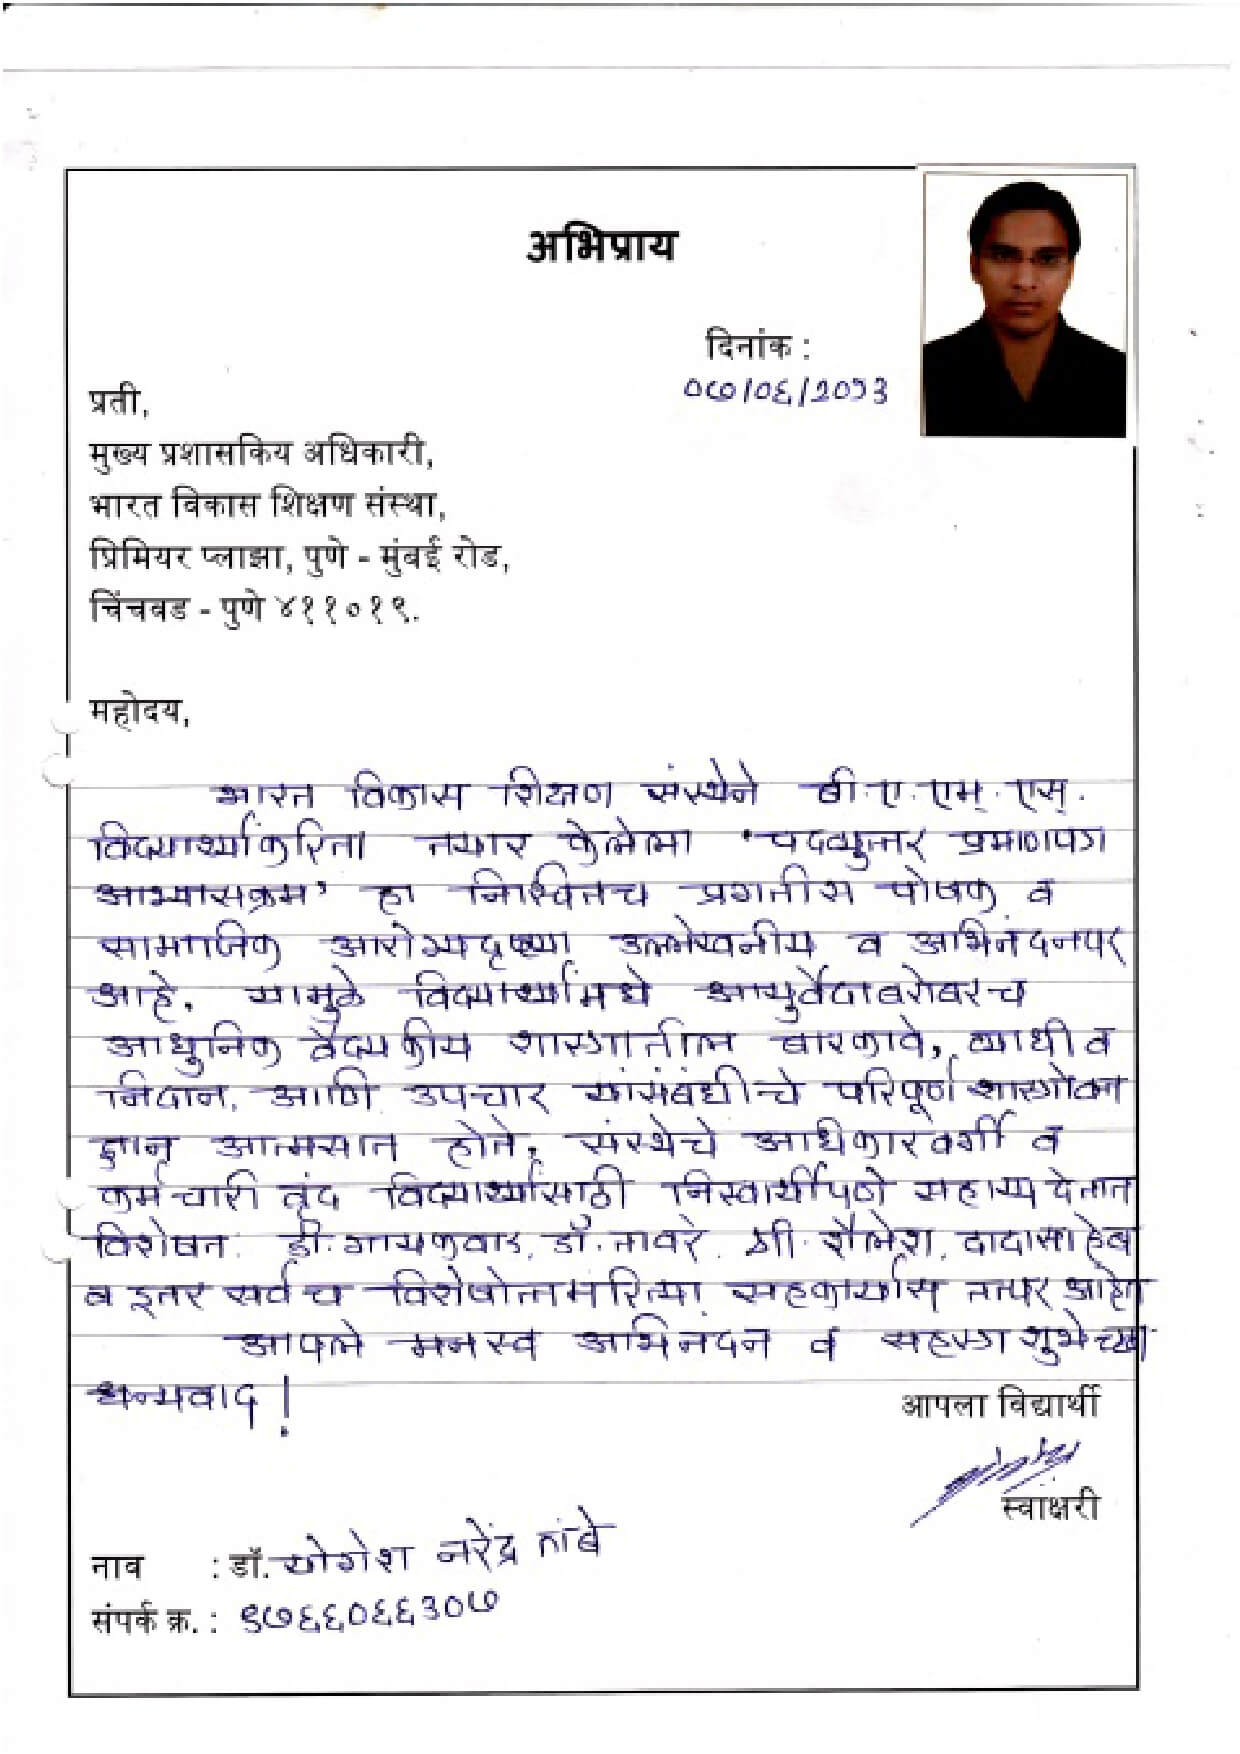 अभिप्राय
दिनांक :
०७/०६/२०१३
प्रती,
मुख्य प्रशासकिय अधिकारी,
भारत विकास शिक्षण संस्था,
प्रिमियर प्लाझा, पुणे - मुंबई रोड,
चिंचवड - पुणे ४११०१९.
महोदय,
भारत विकास शिक्षण संस्थेने बी.ए.एम्.एस्.
विद्यार्थ्यांकरिता तयार केलेला 'पदव्युत्तर प्रमाणपत्र
अभ्यासक्रम' हा निश्चितच प्रगतीस पोषक व
सामाजिक आरोग्यदृष्ट्या उल्लेखनीय व अभिनंदनपर
आहे. यामुळे विद्यार्थ्यांमधे आयुर्वेदाबरोबरच
आधुनिक वैद्यकीय शास्त्रातील बारकावे, व्याधी व
निदान, आणि उपचार यांसंबंधीचे परिपूर्ण शास्त्रोक्त
ज्ञान आत्मसात होते. संस्थेचे अधिकारवर्गी व
कर्मचारी वृंद विद्यार्थ्यांसाठी निस्वार्थीपणे सहाय्य देतात
विशेषत: डॉ. गायकवाड, डॉ. नावरे, श्री. शैलेश, दादासाहेब
व इतर सर्वच विशेषोत्तमरित्या सहकार्यास तत्पर आहेत
आपले मनस्व अभिनंदन व सहस्त्र शुभेच्छा
धन्यवाद!
आपला विद्यार्थी
स्वांक्षरी
नाव : डॉ. योगेश नरेंद्र तांबे
संपर्क क्र. : ९७६६०६६३०७